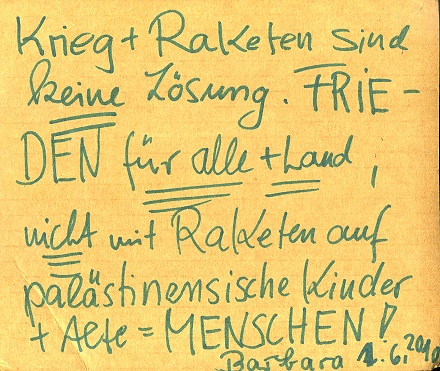 Krieg + Raketen sind
keine Lösung. FRIE-
DEN für alle + Land,
nicht mit Raketen auf
palästinensische Kinder
+ Alte = MENSCHEN!
Barbara 1.6.2010